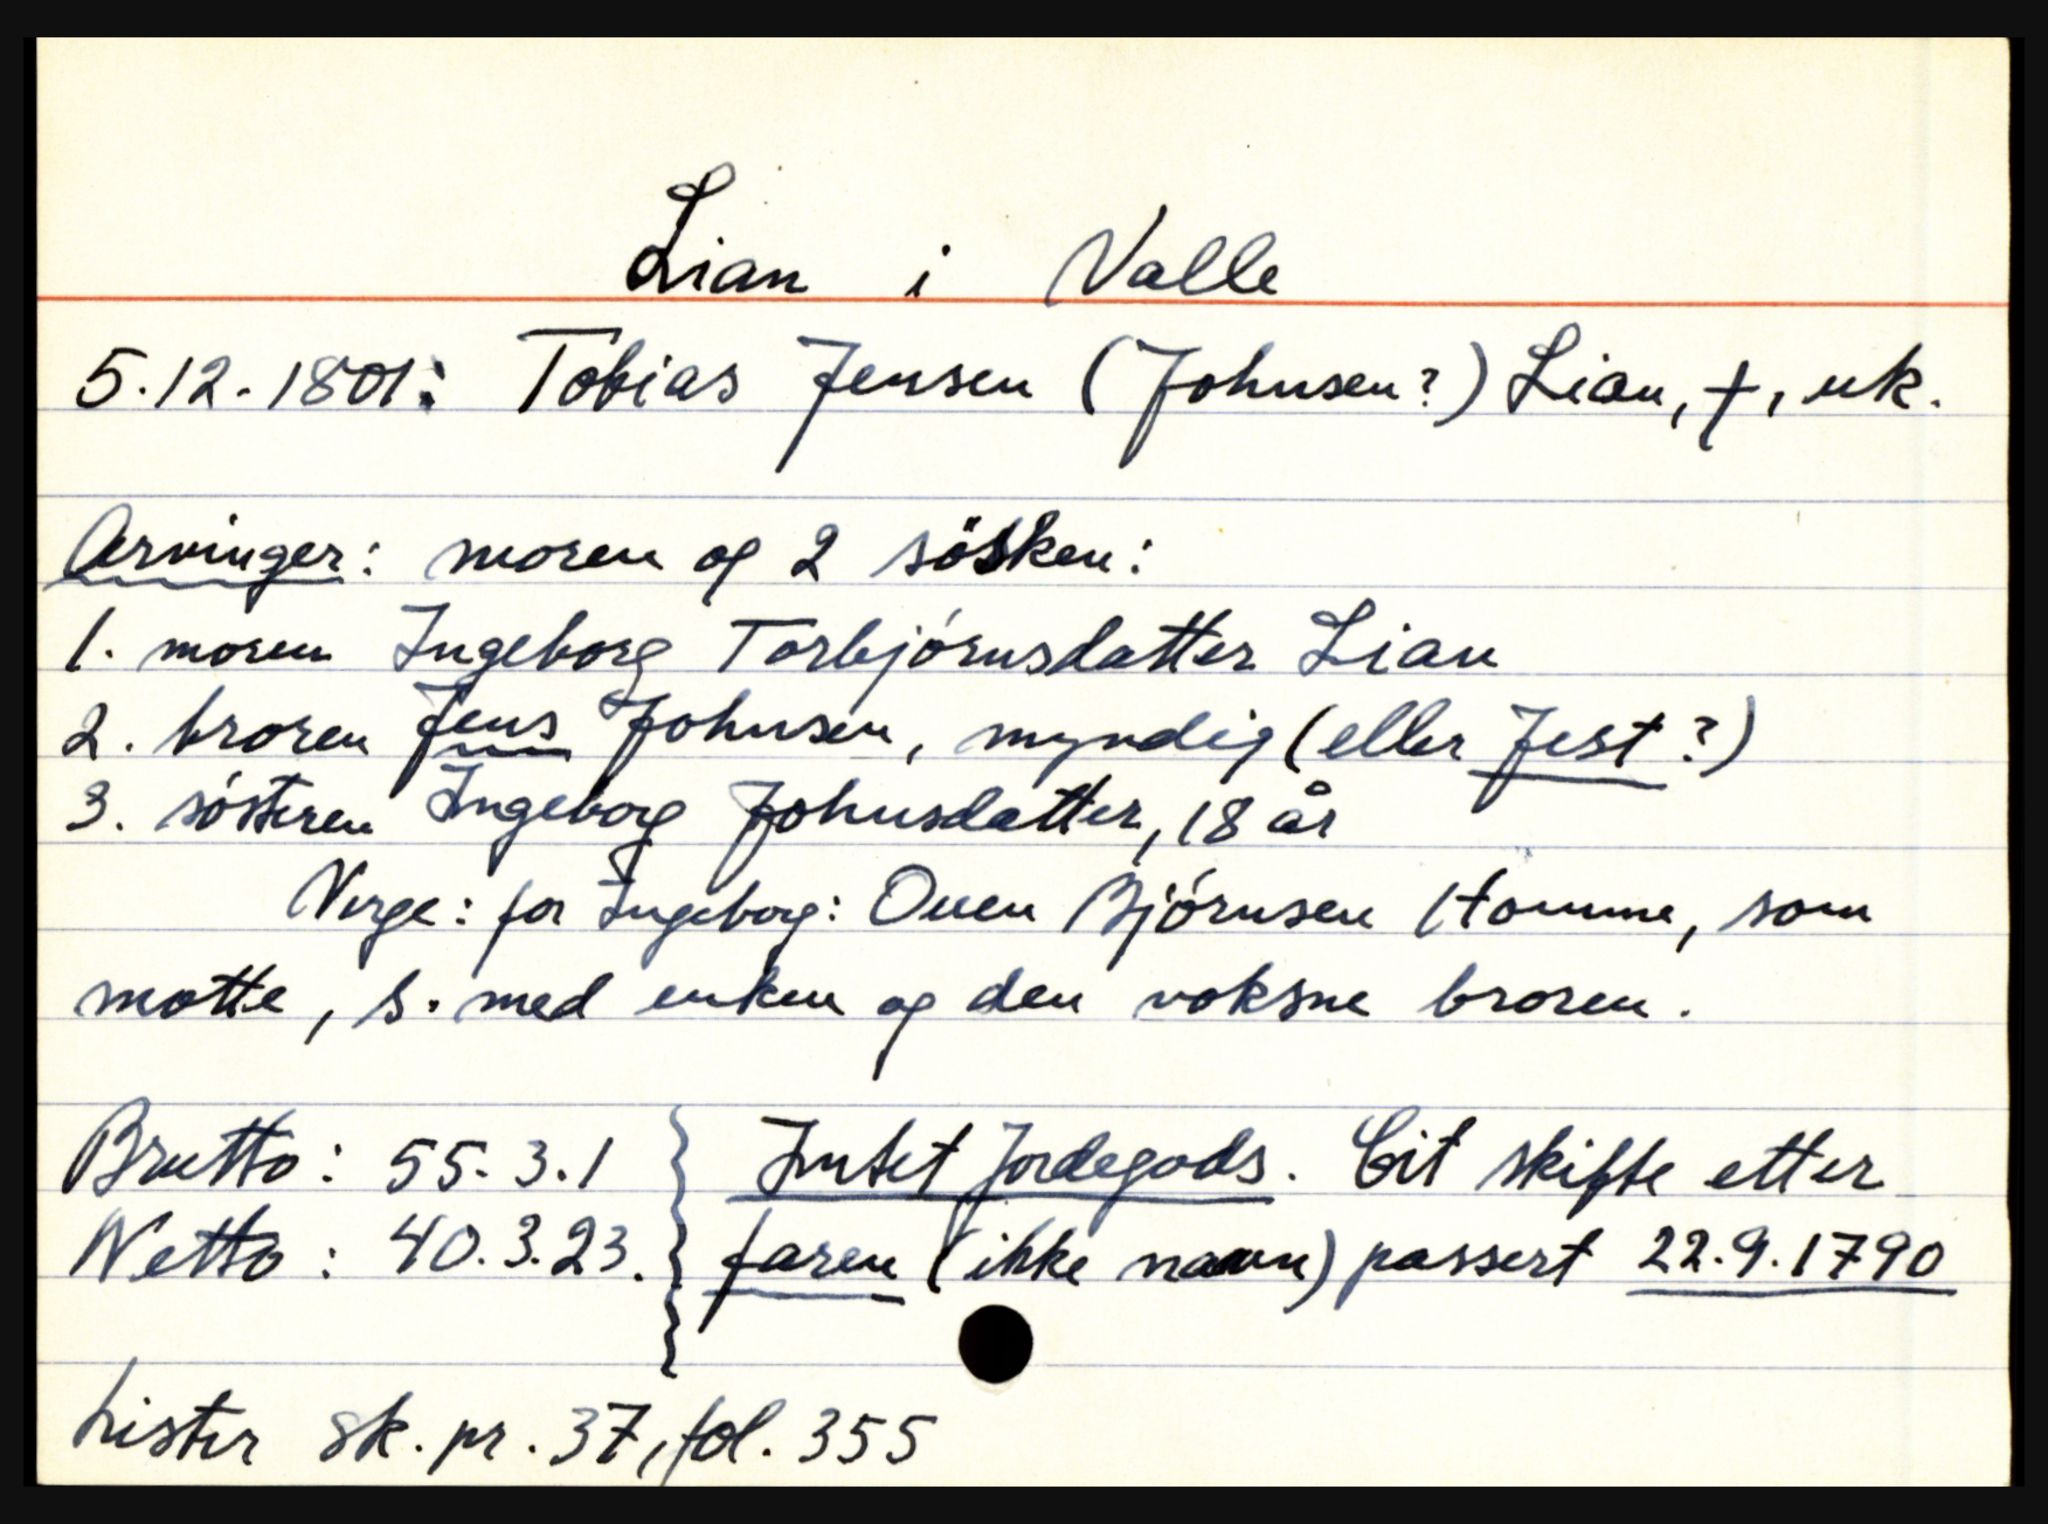 Lian i Valle
5.12.1801: Tobias Jensen (Johnsen?) Lian, †, uk.
Arvinger: moren og 2 sösken:
1. moren Ingeborg Torbjórnsdatter Lian
2. broren Jens Johnsen, myndig (eller Jest?)
3. sósteren Ingeborg Johnsdatter, 18 år
Verge: for Ingeborg: Ouen Bjórnsen Homme, som
møtte, s. med enken og den voksne broren.
Brutto: 55.3.1 } Intet Jordegods. Cit skifte etter
Netto: 40.3.23. } faren (ikke navn) passert 22.9.1790
Lister sk. pr. 37, fol. 355